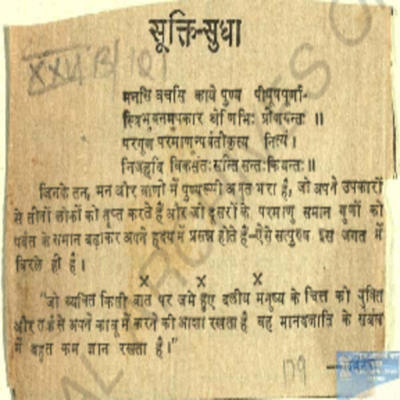 सूक्ति-सुधा
XXVI B/121
मनसि वचसि काये पुण्य पीयूषपूर्णा-
स्त्रिभुवनमुपकार श्रेणिभिः प्रीणयन्तः ॥
परगुण परमाणून्पर्वतीकृत्य नित्यं।
निजहृदि विकसंतः सन्ति सन्तः कियन्तः ॥
जिनके तन, मन और वाणी में पुण्यरूपी अमृत भरा है, जो अपने उपकारों
से तीनों लोकों को तृप्त करते हैं और जो दूसरों के परमाणु समान गुणों को
पर्वत के समान बढ़ाकर अपने हृदय में प्रसन्न होते हैं-ऐसे सत्पुरुष इस जगत में
बिरले ही हैं।
x x x
"जो व्यक्ति किसी बात पर जमे हुए दलीय मनुष्य के चित्त को युक्ति
और तर्क से अपने काबू में करने की आशा रखता है वह मानवजाति के संबंध
में बहुत कम ज्ञान रखता है।"
179